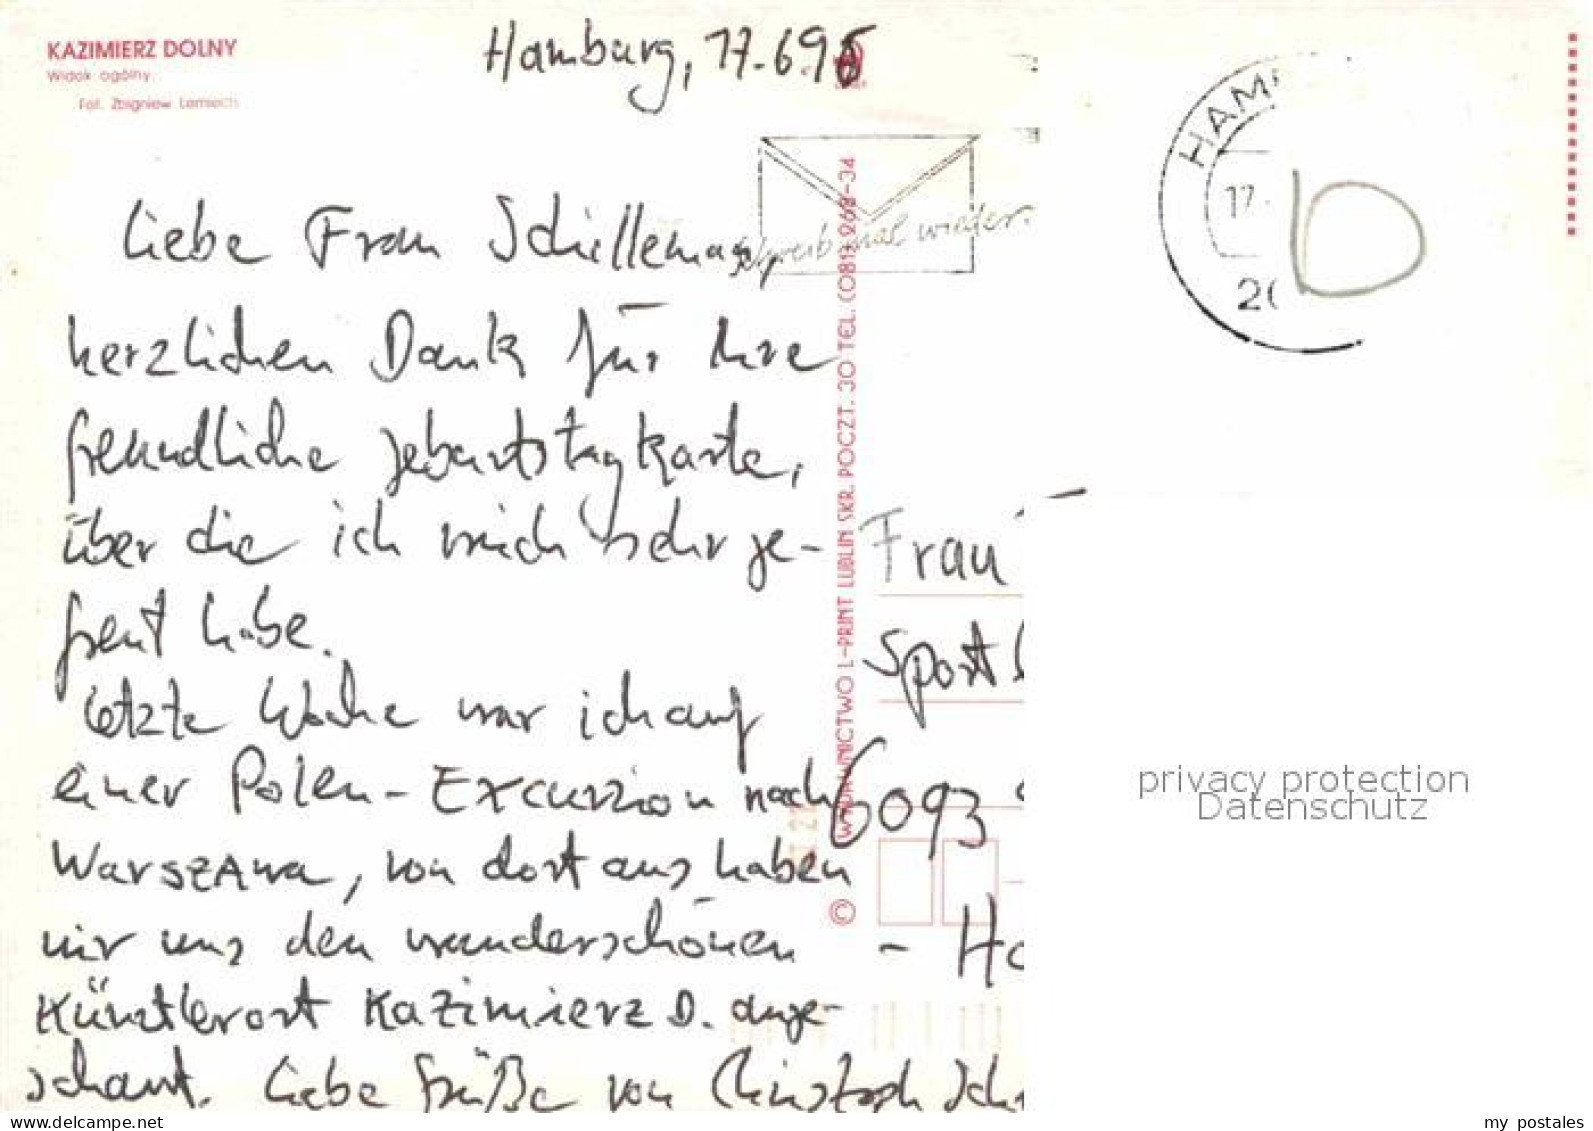 KAZIMIERZ DOLNY
Widok ogólny
Fot. Zbigniew Lemiech
Hamburg, 17.6.96
Liebe Frau Schillemann,
herzlichen Dank für Ihre
freundliche Geburtstagkarte,
über die ich mich sehr ge-
freut habe.
Letzte Woche war ich auf
einer Polen-Excursion nach
Warszawa, von dort aus haben
wir uns den wunderschönen
Künstlerort Kazimierz D. ange-
schaut. Liebe Grüße von Christoph Sch
Schreib mal wieder.
© WYDAWNICTWO L-PRINT LUBLIN SKR. POCZT. 30 TEL. (081) 269-34
HAM
17.
20
b
Frau
Sport
6093
- Ha
privacy protection
Datenschutz
www.delcampe.net
my postales